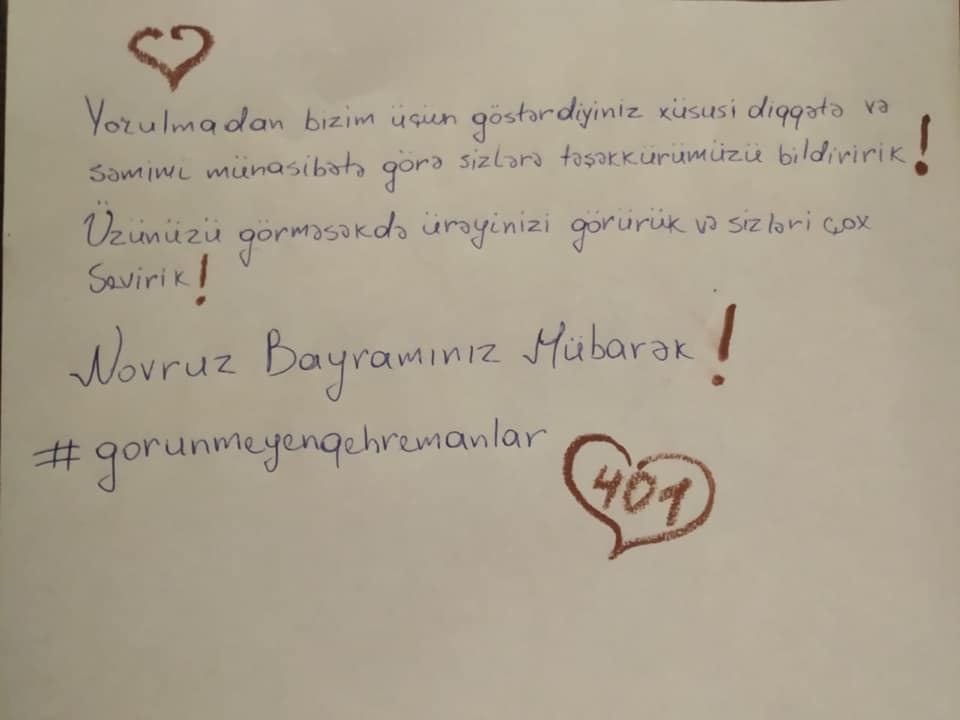 Yorulmadan bizim üçün göstərdiyiniz xüsusi diqqətə və
səmimi münasibətə görə sizlərə təşəkkürümüzü bildiririk!
Üzünüzü görməsəkdə ürəyinizi görürük və sizləri çox
Sevirik!
Novruz Bayramınız Mübarək!
#gorunmeyenqehremanlar
401